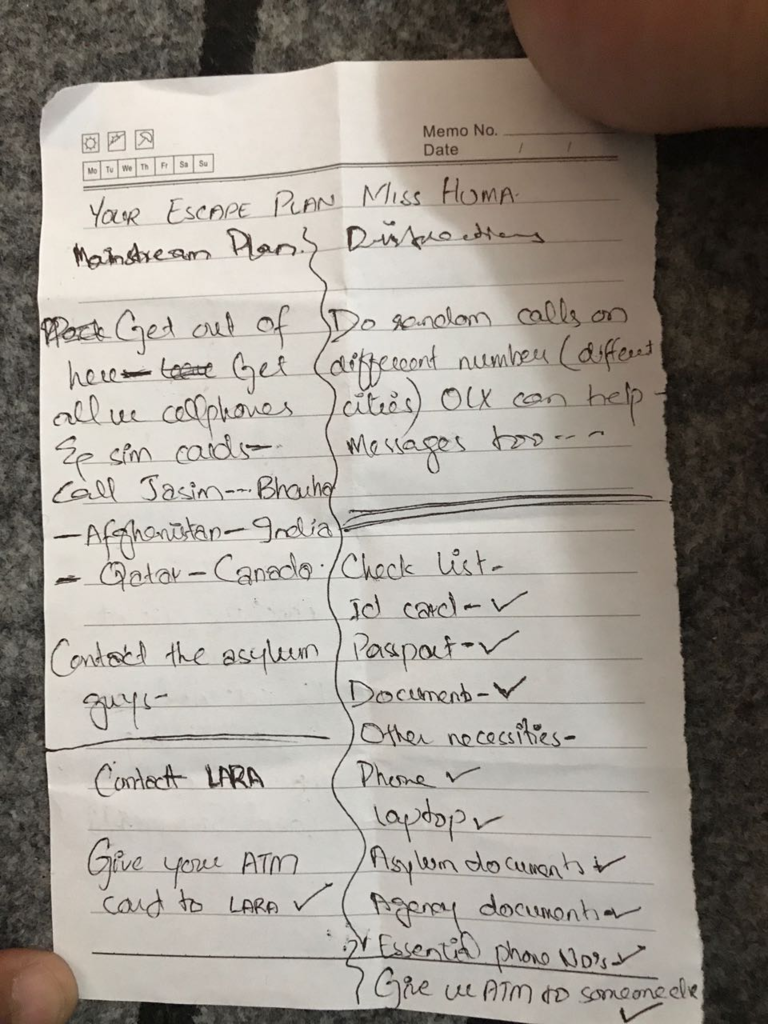 Memo No.
Date / /
Mo Tu We Th Fr Sa Su
YOUR ESCAPE PLAN MISS HUMA.
Mainstream Plan.
Get out of
here Get
all ur cellphones
& sim cards-
Call Jasim---
-Afghanistan-India
- Qatar-Canada.
Contact the asylum
guys-
Contact LARA
Give your ATM
card to LARA ✓
Distractions
Do random calls on
different number (different
cities) OLX can help-
Messages too---
Check list-
Id card-✓
Passport-✓
Document-✓
Other necessities-
Phone ✓
Laptop ✓
Asylum documents ✓
Agency documents ✓
Essential phone No's ✓
Give ur ATM to someone else
✓